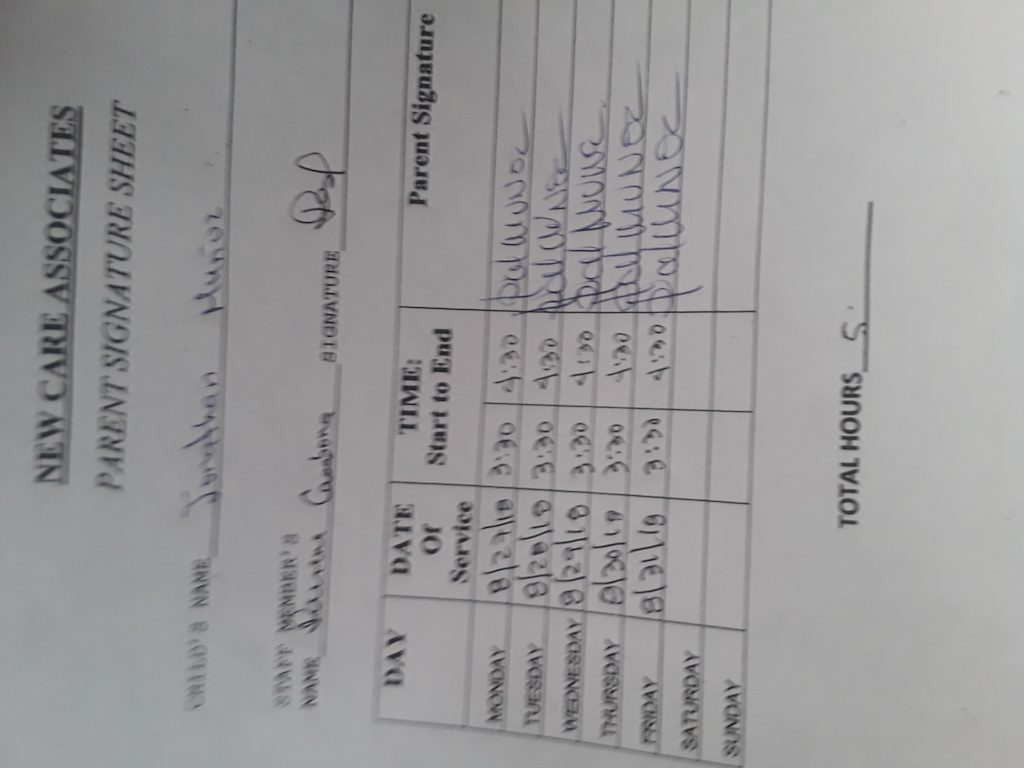 NEW CARE ASSOCIATES
PARENT SIGNATURE SHEET
CHILD'S NAME Jonathan Muñoz
STAFF MEMBER'S
NAME SIGNATURE
DAY DATE Of Service TIME: Start to End Parent Signature
MONDAY 8/27/18 3:30 4:30
TUESDAY 8/28/18 3:30 4:30
WEDNESDAY 8/29/18 3:30 4:30
THURSDAY 8/30/18 3:30 4:30
FRIDAY 8/31/18 3:30 4:30
SATURDAY
SUNDAY
TOTAL HOURS 5